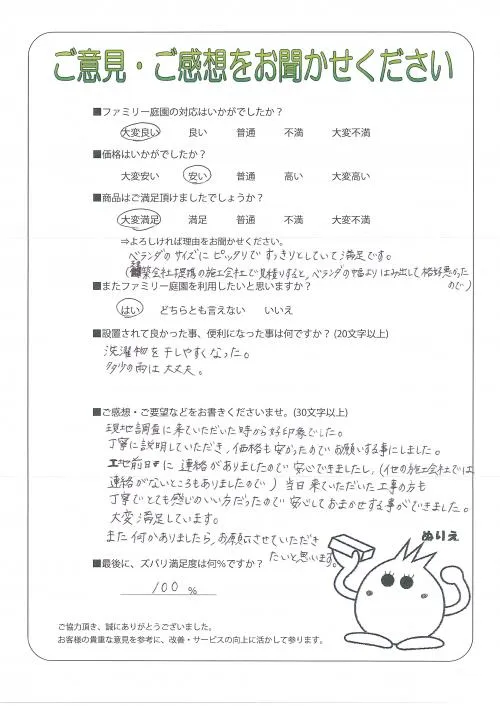 ご意見・ご感想をお聞かせください
■ファミリー庭園の対応はいかがでしたか？
大変良い 良い 普通 不満 大変不満
■価格はいかがでしたか？
大変安い 安い 普通 高い 大変高い
■商品はご満足頂けましたでしょうか？
大変満足 満足 普通 不満 大変不満
⇒よろしければ理由をお聞かせください。
ベランダのサイズにピッタリですっきりとしていて満足です。
(建築会社提携の施工会社で見積りすると、ベランダの幅よりはみ出して格好悪かった
ので)
■またファミリー庭園を利用したいと思いますか？
はい どちらとも言えない いいえ
■設置されて良かった事、便利になった事は何ですか？ (20文字以上)
洗濯物を干しやすくなった。
多少の雨は大丈夫。
■ご感想・ご要望などをお書きくださいませ。(30文字以上)
現地調査に来ていただいた時から好印象でした。
丁寧に説明していただき、価格も安かったのでお願いする事にしました。
工事前日に連絡がありましたので安心できましたし、(他の施工会社では
連絡がないところもありましたので) 当日来ていただいた工事の方も
丁寧でとても感じのいい方だったので安心しておまかせする事ができました。
大変満足しています。
また何かありましたら、お願いさせていただき
たいと思います。
ぬりえ
■最後に、ズバリ満足度は何%ですか？
100 %
ご協力頂き、誠にありがとうございました。
お客様の貴重な意見を参考に、改善・サービスの向上に活かして参ります。